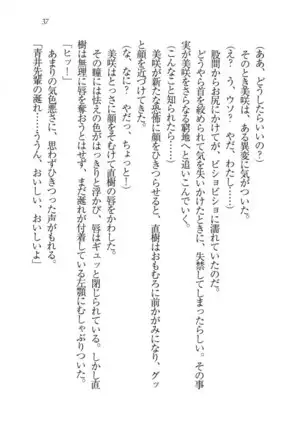 37
（ああ、どうしたらいいの？）
そのとき美咲は、ある異変に気がついた。
（え？　う、ウソ？　やだ、わたし……）
股間からお尻にかけてが、ビショビショに濡れていたのだ。
どうやら首を絞められて気を失いかけたときに、失禁してしまったらしい。その事
実が美咲をさらなる窮地へと追いこんでいく。
（こんなことに知られたら……）
美咲が新たな恐怖に顔をひきつらせると、直樹はおもむろに前かがみになり、グッ
と顔を近づけてきた。
（な、なに？　やだ、ちょっと！）
美咲はとっさに顔をそむけて直樹の唇を避けた。
その瞳には怯えの色がはっきりと浮かび、唇はギュッと閉じられている。しかし直
樹は無理に唇を奪おうとはせず、まだ涎れが付着している左顎にむしゃぶりついた。
「ヒッ！」
あまりの気色悪さに、思わずひきつった声がもれる。
「青井先輩の涎れ……うん、おいしい、おいしいよ」